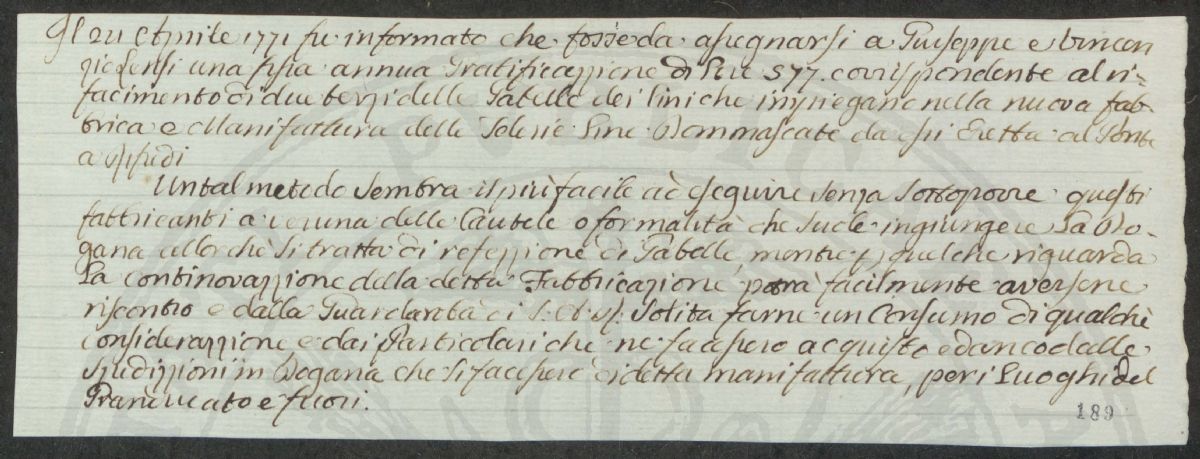 Il 24 Aprile 1771 fu informato che fosse da assegnarsi a Giuseppe e Vincen
zio Sensi una fissa annua Gratificazzione di Lire 577. corrispondente al ri=
facimento di due terzi delle Gabelle dei lini che impiegano nella nuova fab-
brica e Manifattura delle Telerie Line Dommascate da essi Eretta al Ponte
a
Un tal metodo sembra il più facile ad eseguire senza sottoporre questi
fabbricanti a veruna delle Cautele o formalità che suole ingiungere La Do-
gana allorchè si tratta di refezzione di Gabelle, mentre p quelche riguarda
La continovazzione della detta Fabbricazione potrà facilmente aversene
riscontro e dalla Guardaroba di S. A. R. Solita farne un Consumo di qualche
considerazzione e dai Particolari che ne facessero acquisto ed anco dalle
spedizzioni in Dogana che si facessero di detta manifattura, per i Luoghi del
Granducato e fuori.
189